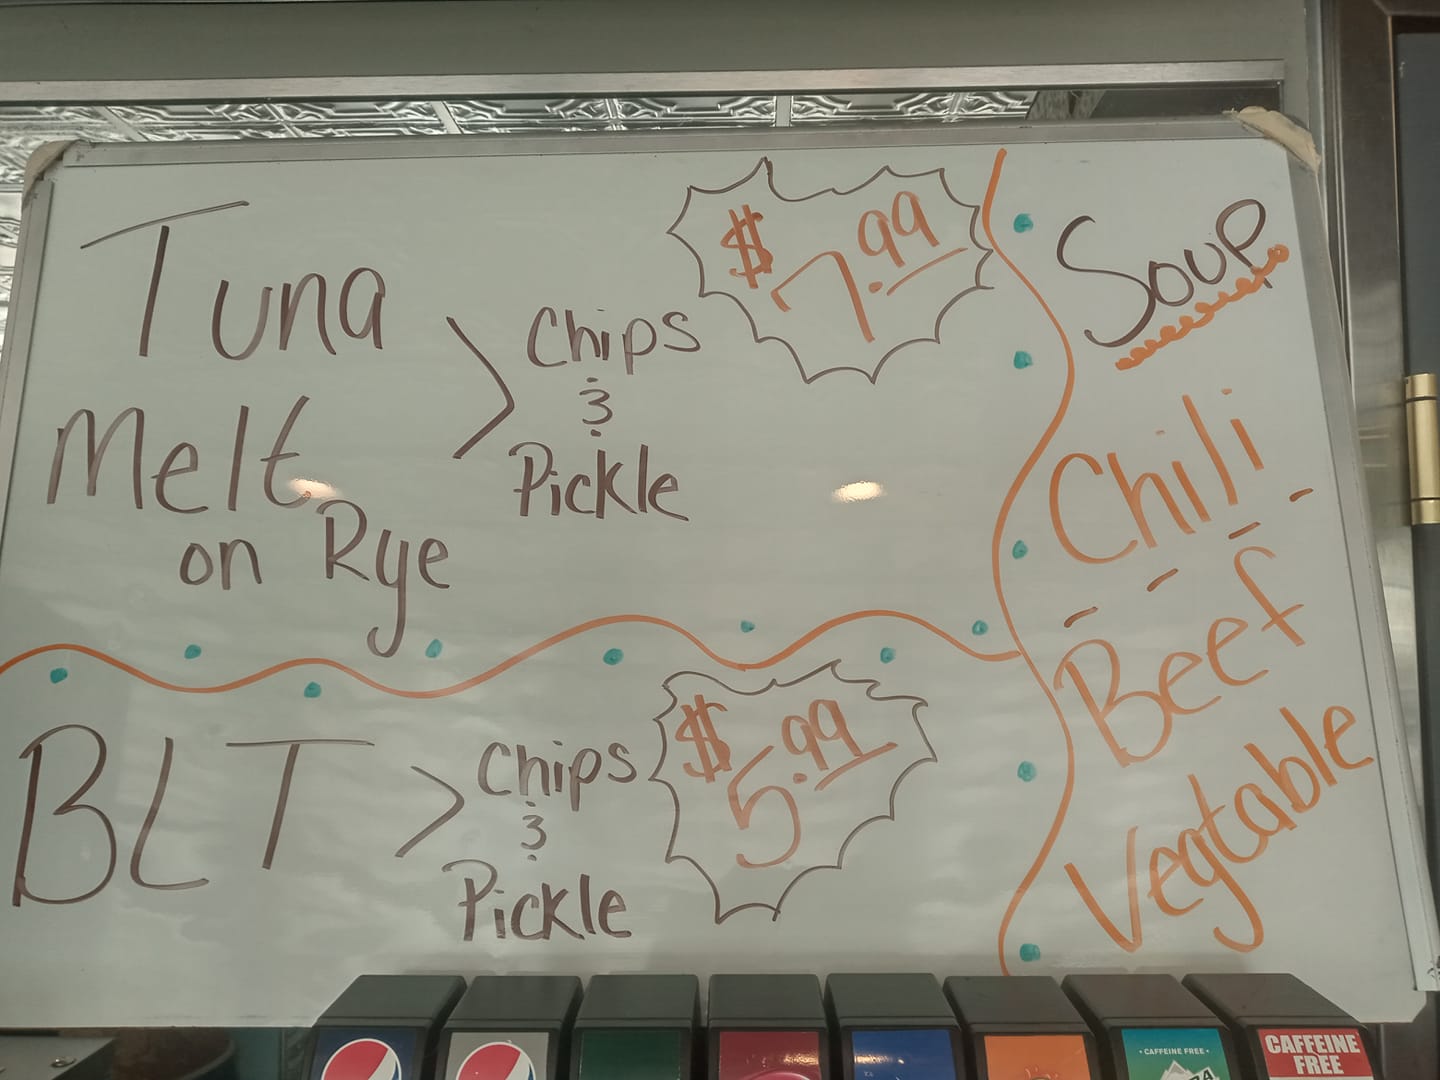 Tuna
Melt
on Rye
> Chips
&
Pickle
$7.99
BLT
> Chips
&
Pickle
$5.99
Soup
Chili
Beef
Vegtable
• CAFFEINE FREE •
CAFFEINE
FREE